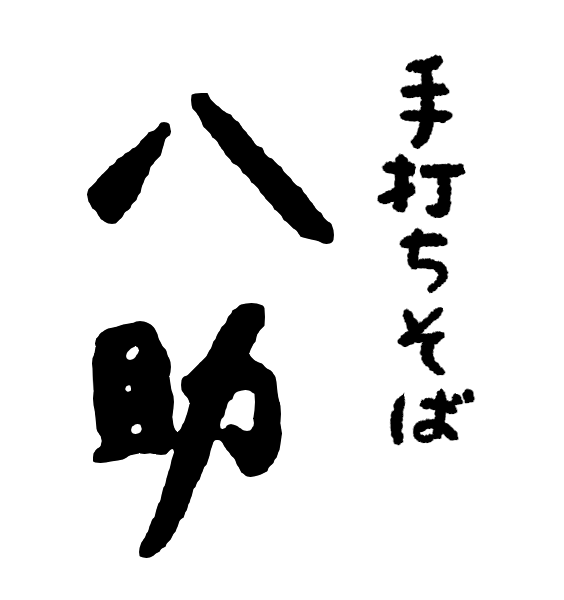 手打ちそば
八助